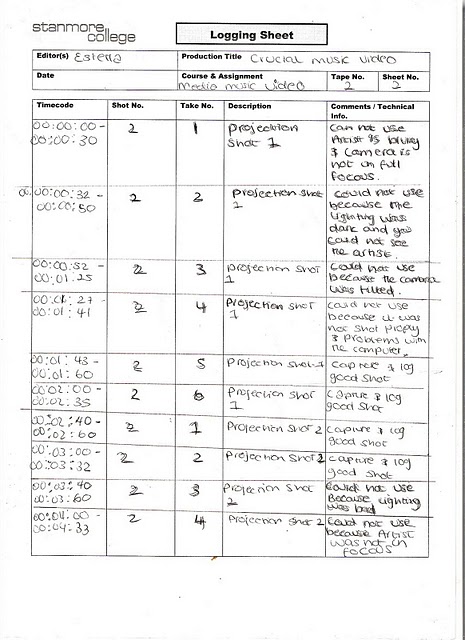 stanmore
college
Logging Sheet
Editor(s) Esterra
Production Title Crucial music video
Date
Course & Assignment
Media music video
Tape No.
2
Sheet No.
2
Timecode
Shot No.
Take No.
Description
Comments / Technical
Info.
00:00:00 -
00:00:30
2
1
Projection
Shot 1
Can not use
Artist is blurry
& camera is
not in full
focous.
00:00:32 -
00:00:50
2
2
Projection Shot
1
Could not use
because the
lighting was
dark and you
could not see
the artist.
00:00:52 -
00:01:25
2
3
Projection shot
1
Could not use
because the camera
was tilted.
00:01:27 -
00:01:41
2
4
Projection shot
1
Could not use
because it was
not shot Proply
& Problems with
the computer.
00:01:43 -
00:01:60
2
5
Projection shot 1
Capture & log
good shot
00:02:00 -
00:02:35
2
6
Projection shot
1
Capture & log
good shot
00:02:40 -
00:02:60
2
1
Projection Shot 2
Capture & log
good shot
00:03:00 -
00:03:32
2
2
Projection Shot 2
Capture & log
good shot
00:03:40
00:03:60
2
3
Projection Shot
2
Could not use
Because Lighting
was bad
00:04:00 -
00:04:33
2
4
Projection shot 2
Could not use
because Artist
was not in
focous